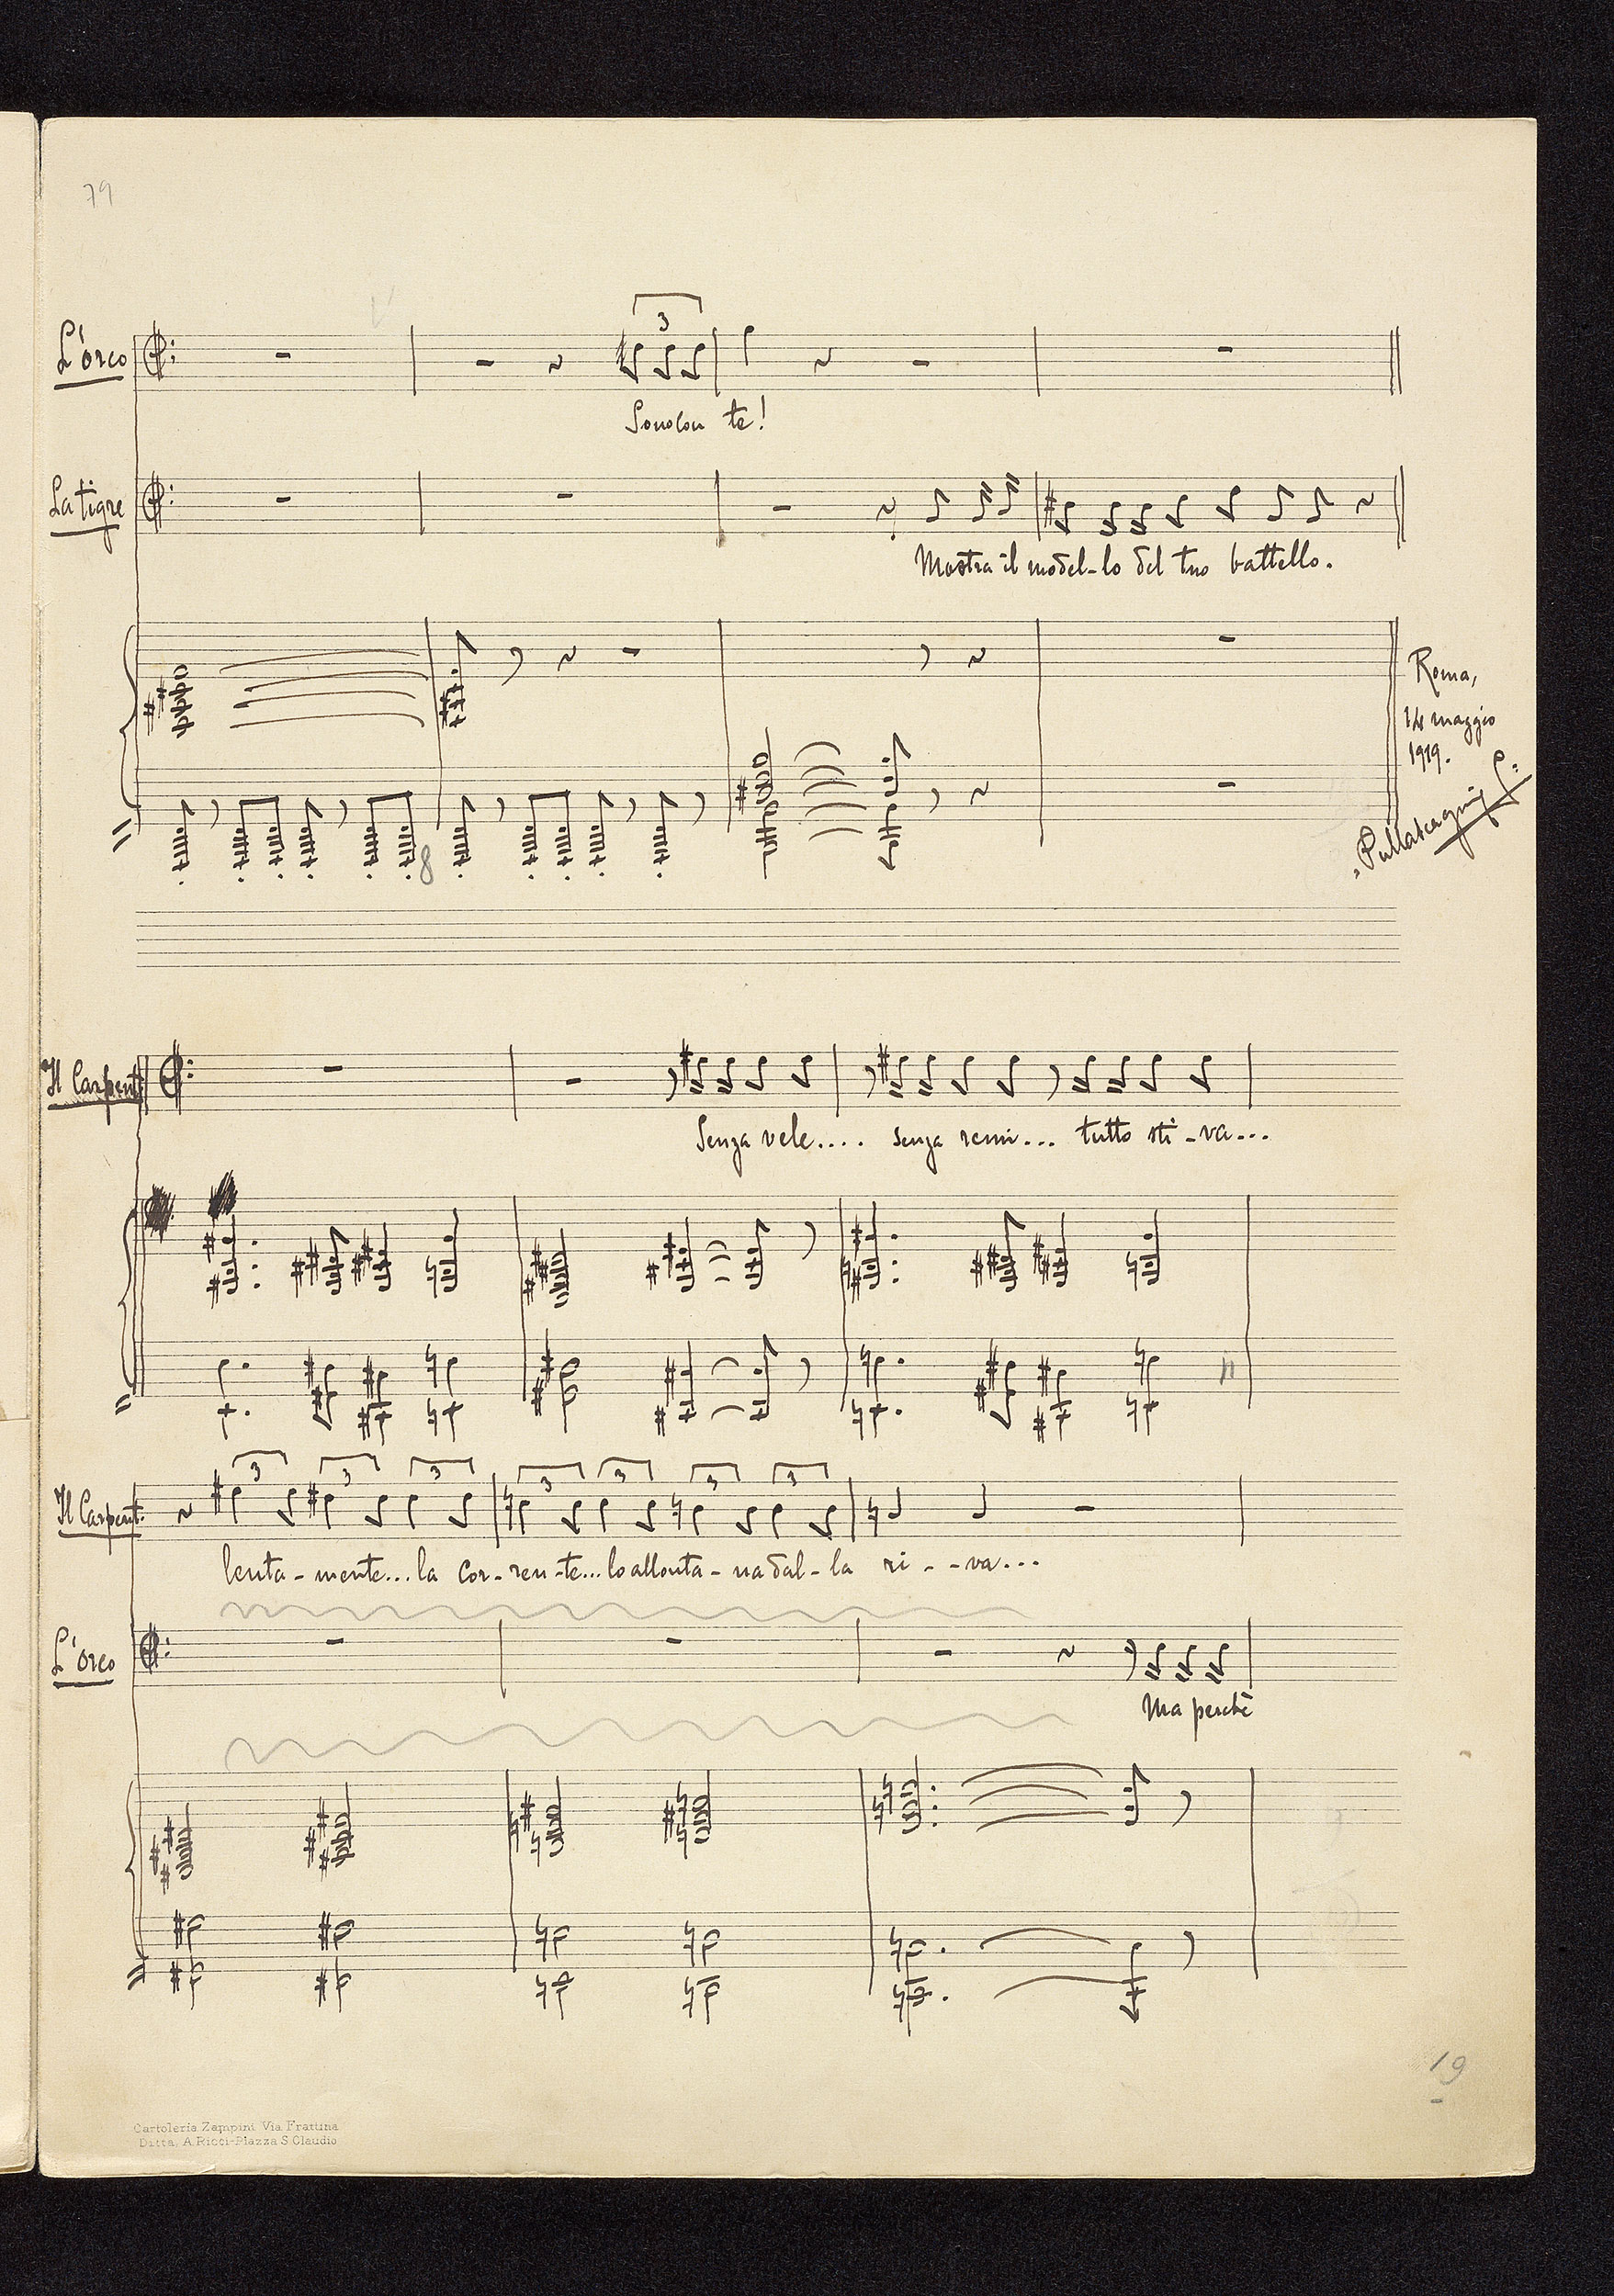 79
L'orco
3
Sono con te!
La tigre
Mostra il model-lo del tuo battello.
Roma,
14 maggio
1919.
8
Il Carpent.
Senza vele.... senza remi... tutto sti-va...
Il Carpent.
3 3 3 3 3 3 3
lenta-mente... la cor-ren-te... lo allonta-na dal-la ri--va...
L'orco
Ma perchè
19
Cartoleria Zampini Via Frattina
Ditta, A. Ricci-Piazza S. Claudio